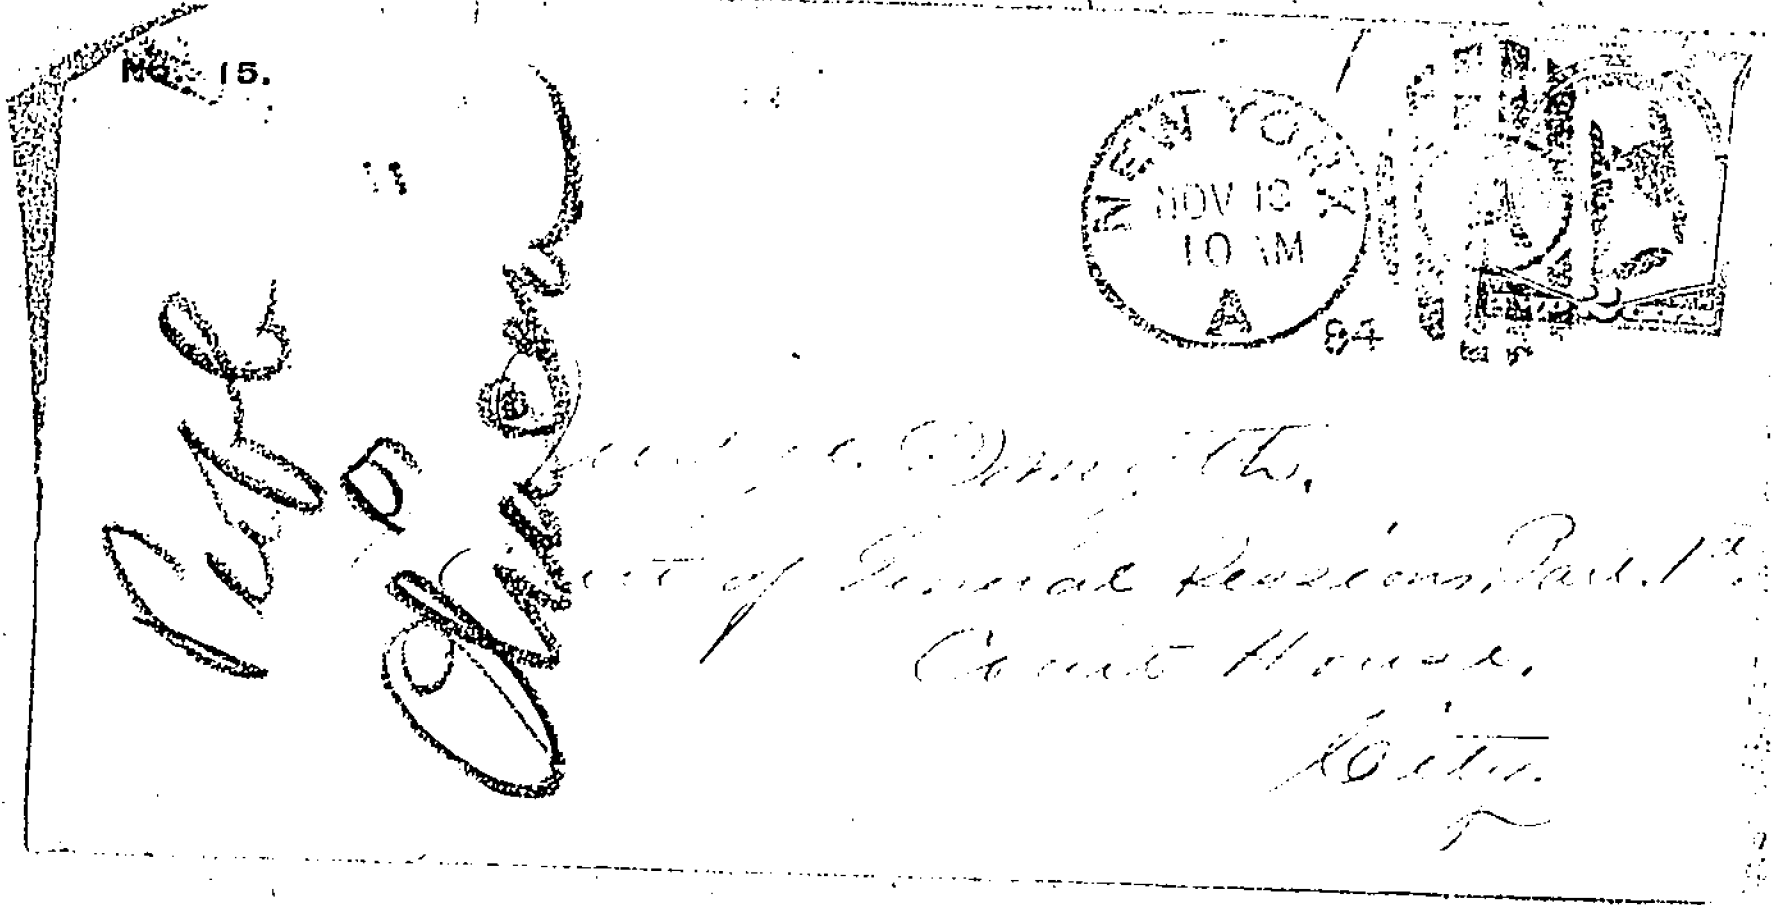 No. 15.
NEW YORK
NOV 18
10 AM
A
84
Judge Smyth,
Court of General Sessions, Part 1st.
Court House.
City.